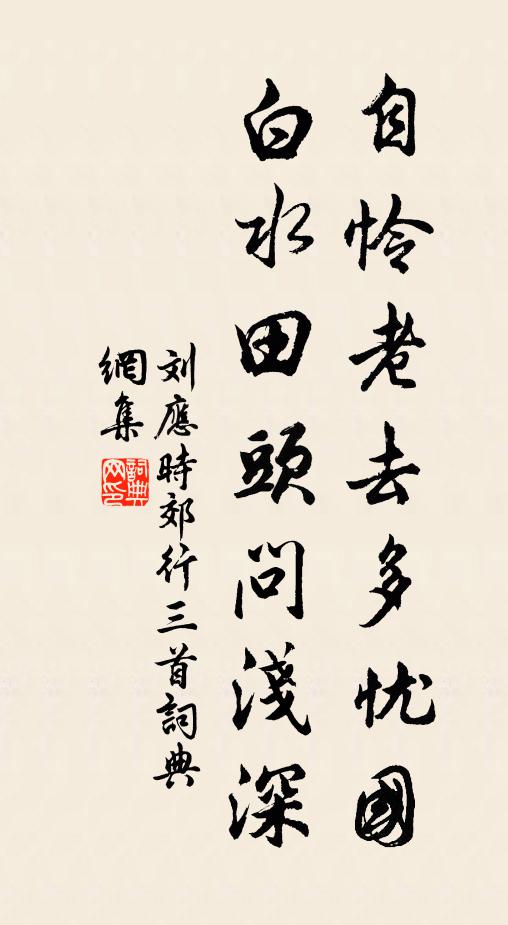 自怜老去多忧國
白水田頭問淺深
刘應時郊行三首詞典
網集
詞典
网印